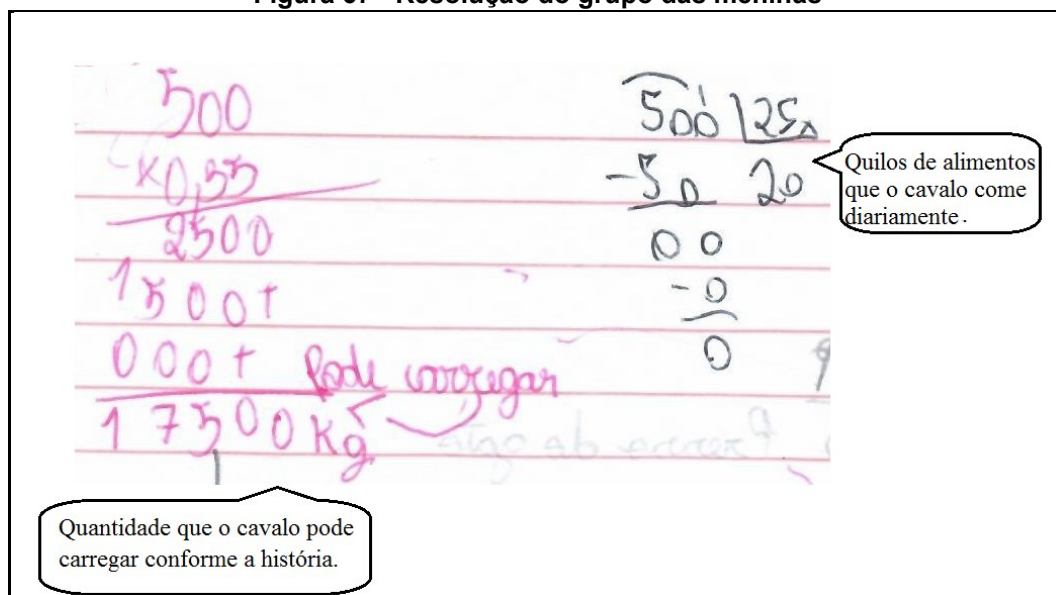 Figura - Resolução do grupo das meninas
500
x0,35
2500
1500+
000+ Pode carregar
17500 Kg
500 |25
-50 20
00
-0
0
Quilos de alimentos
que o cavalo come
diariamente.
Quantidade que o cavalo pode
carregar conforme a história.